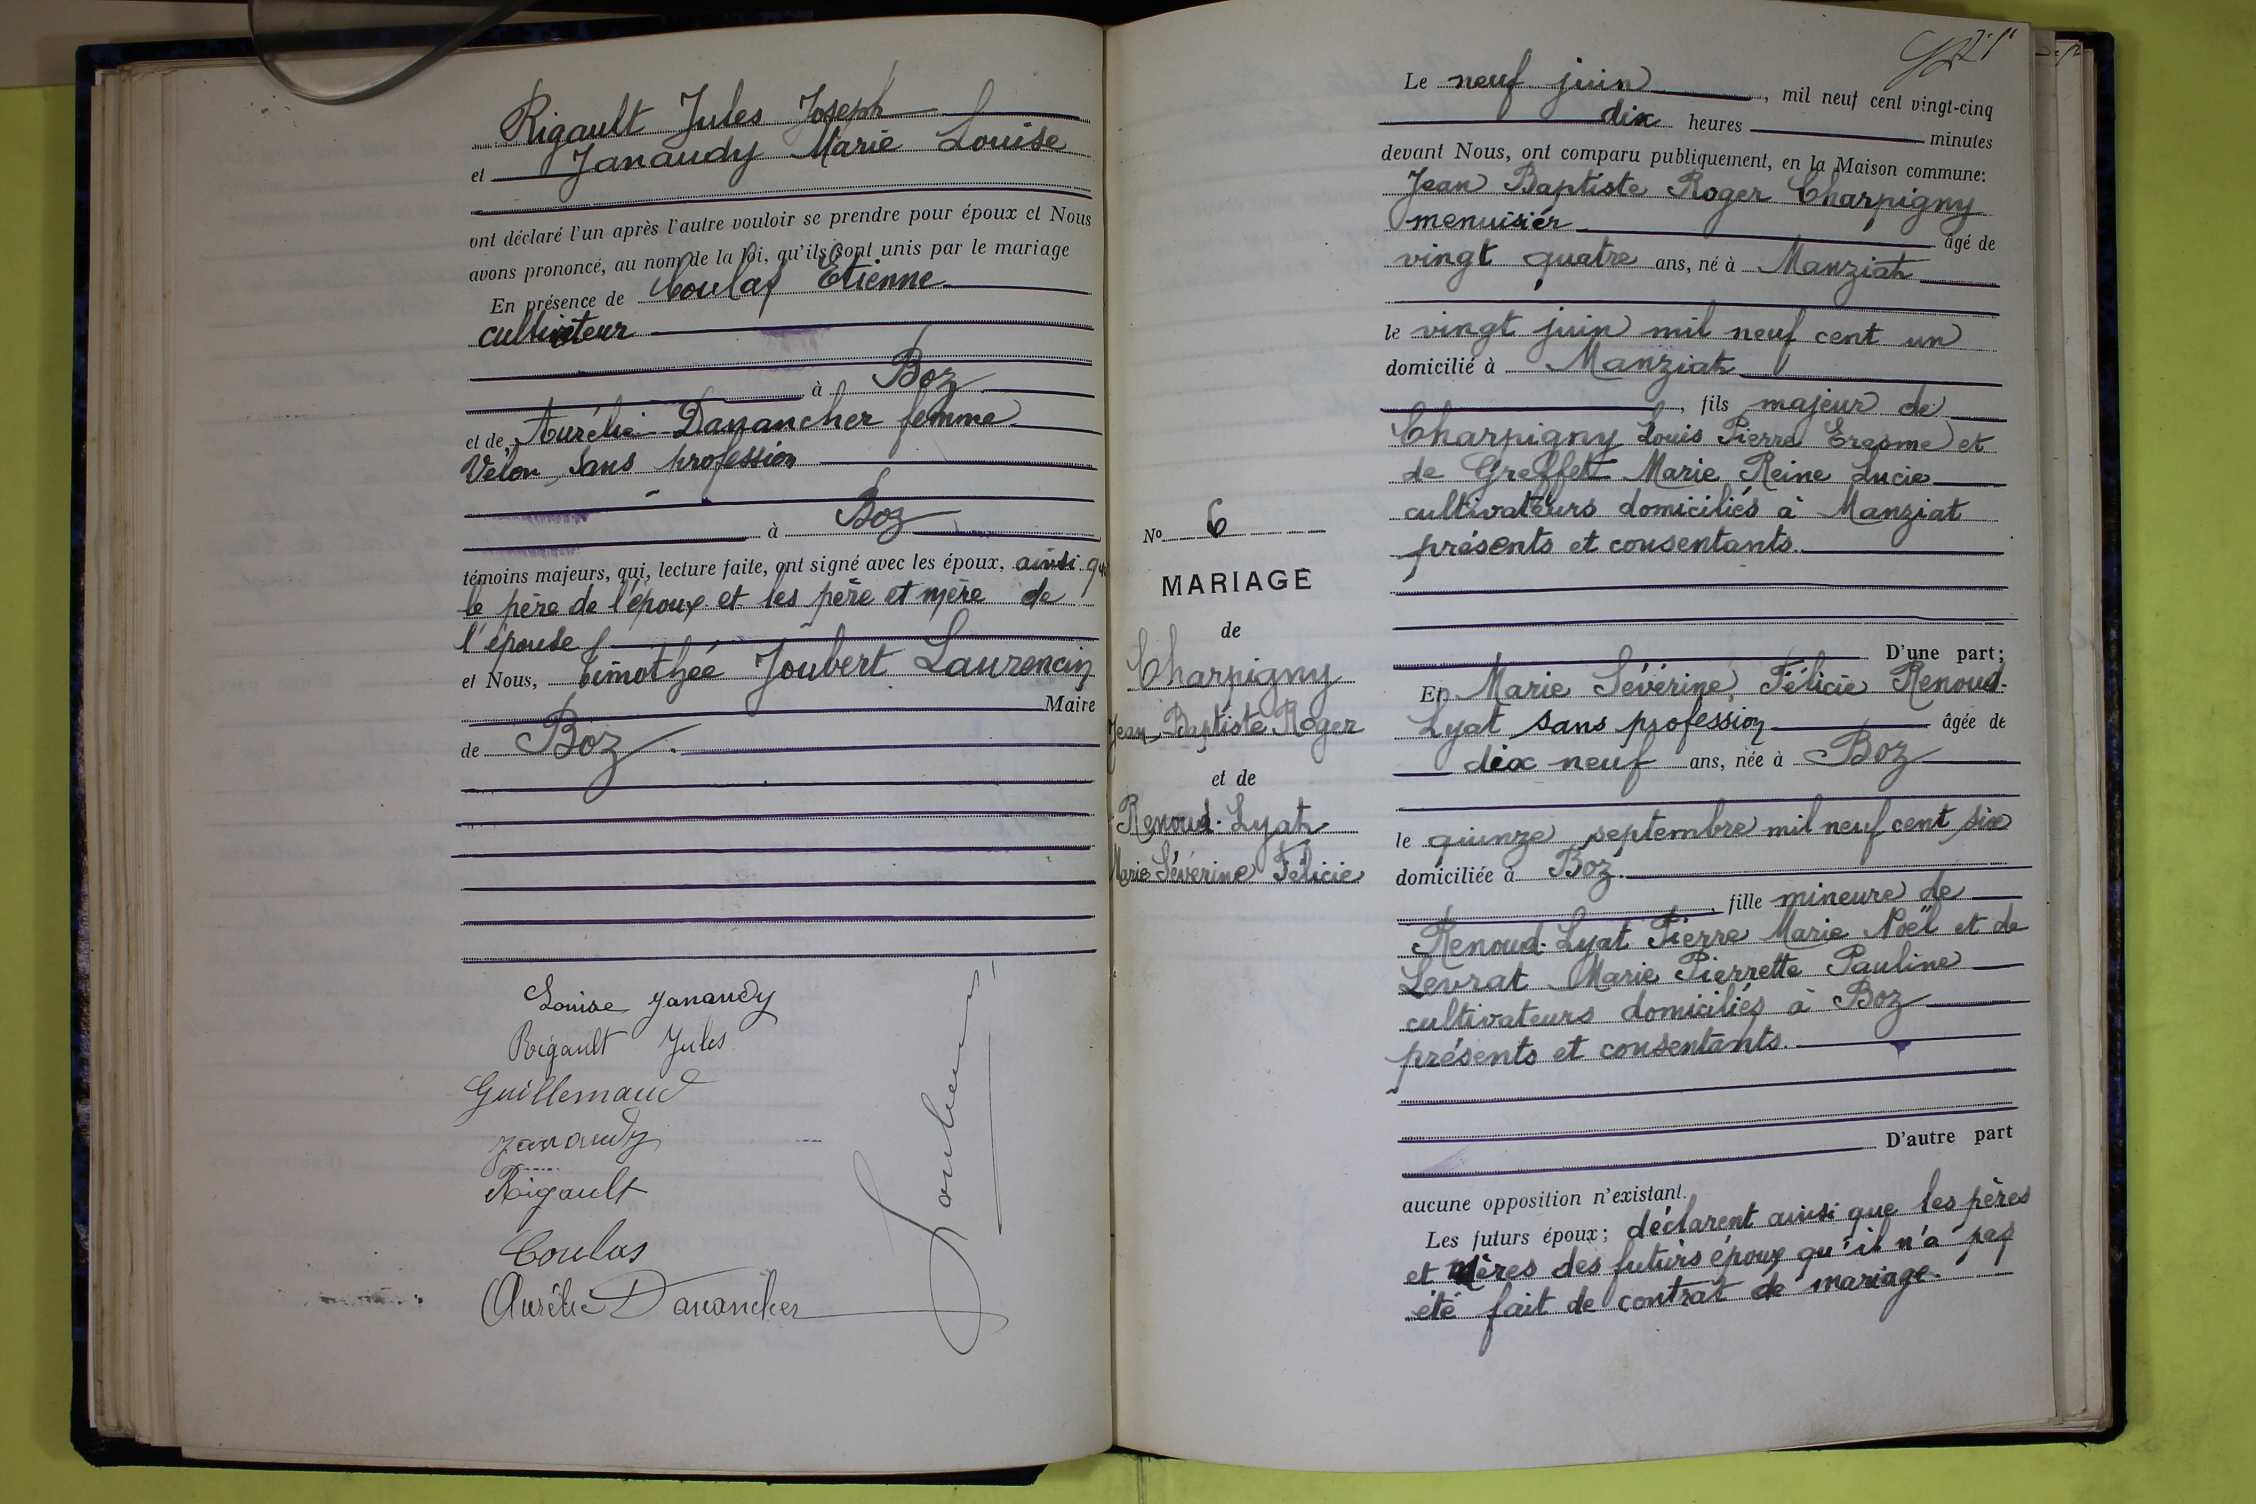 Rigault Jules Joseph
et Janaudy Marie Louise
ont déclaré l'un après l'autre vouloir se prendre pour époux et Nous
avons prononcé, au nom de la loi, qu'ils sont unis par le mariage
En présence de Coulas Etienne
cultivateur
à Boz
et de Aurélie Danancher femme
Velon, sans profession
à Boz
témoins majeurs, qui, lecture faite, ont signé avec les époux, ainsi que
le père de l'époux et les père et mère de
l'épouse
et Nous, Timothée Joubert Laurencin
Maire
de Boz.
Louise Janaudy
Rigault Jules
Guillemaud
Janaudy
Rigault
Coulas
Aurélie Danancher
No 6
MARIAGE
de
Charpigny
Jean-Baptiste Roger
et de
Renoud-Lyat
Marie Séverine Félicie
Le neuf juin, mil neuf cent vingt-cinq
dix heures minutes
devant Nous, ont comparu publiquement, en la Maison commune:
Jean Baptiste Roger Charpigny
menuisier âgé de
vingt quatre ans, né à Manziat
le vingt juin mil neuf cent un
domicilié à Manziat
, fils majeur de
Charpigny Louis Pierre Erasme et
de Greffet Marie Reine Lucie
cultivateurs domiciliés à Manziat
présents et consentants.
D'une part;
Et Marie Séverine Félicie Renoud-
Lyat sans profession âgée de
dix neuf ans, née à Boz
le quinze septembre mil neuf cent six
domiciliée à Boz.
, fille mineure de
Renoud-Lyat Pierre Marie Noël et de
Levrat Marie Pierrette Pauline
cultivateurs domiciliés à Boz
présents et consentants.
D'autre part
aucune opposition n'existant.
Les futurs époux; déclarent ainsi que les pères
et mères des futurs époux qu'il n'a pas
été fait de contrat de mariage.